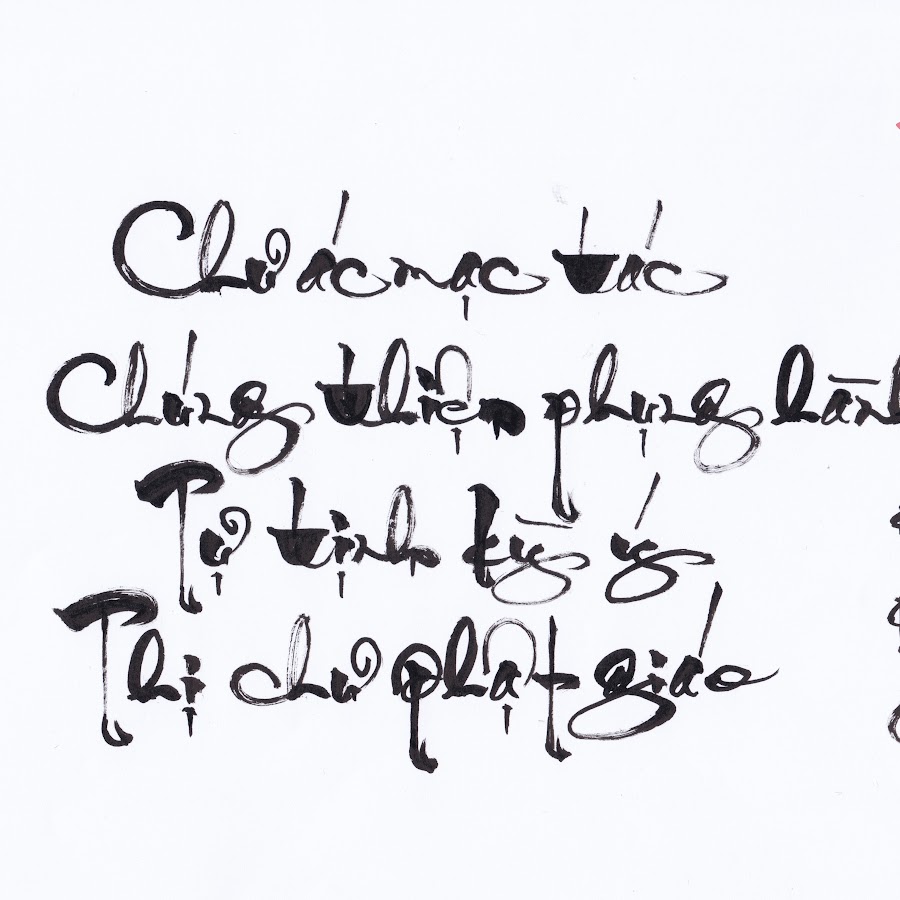 Chư ác mạc tác
Chúng thiện phụng hành
Tự tịnh kỳ ý
Thị chư phật giáo